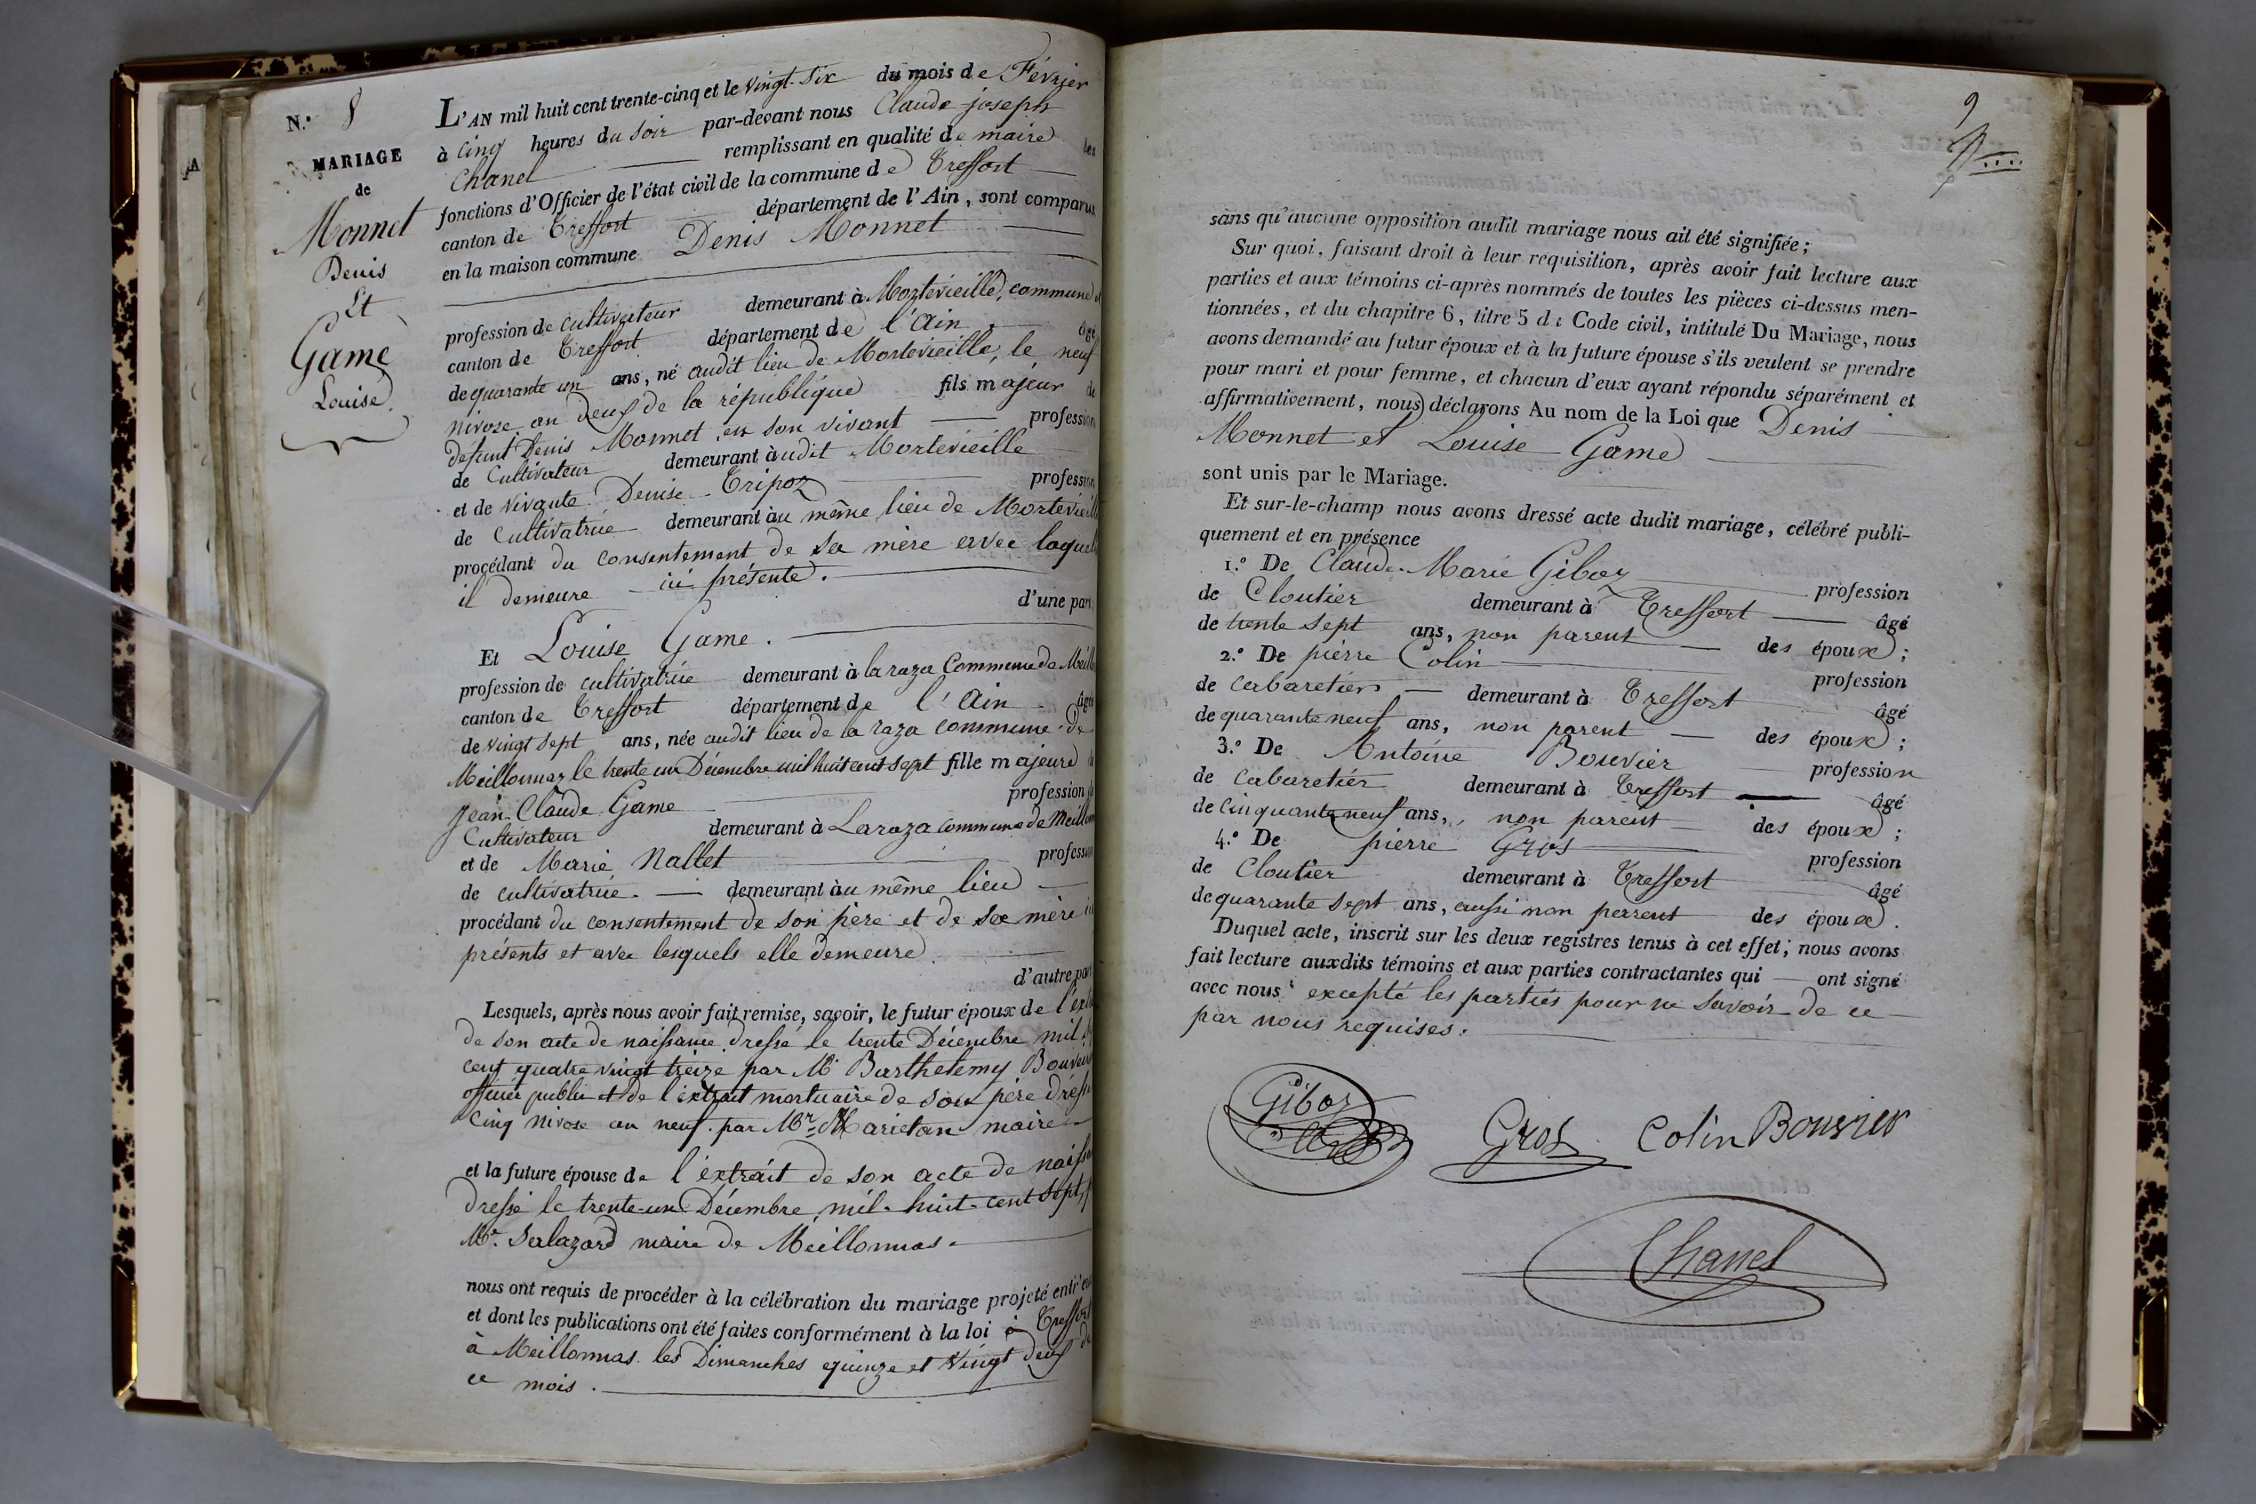 N.° 8
MARIAGE
de
Monnet
Denis
Et
Game
Louise
L'AN mil huit cent trente-cinq et le vingt-six du mois de Février
à cinq heures du soir par-devant nous Claude joseph
Chanel remplissant en qualité de maire les
fonctions d'Officier de l'état civil de la commune de Treffort
canton de Treffort département de l'Ain, sont comparus
en la maison commune Denis Monnet
profession de cultivateur demeurant à Mortevieille, commune
canton de Treffort département de l'Ain âgé
de quarante un ans, né audit lieu de Mortevieille, le neuf
nivose an deux de la république fils majeur de
defunt Denis Monnet, en son vivant profession
de Cultivateur demeurant audit Mortevieille
et de vivante Denise Tripoz profession
de Cultivatrice demeurant au même lieu de Mortevieille
procédant du consentement de sa mère avec laquelle
il demeure ici présente.
d'une part,
Et Louise Game.
profession de cultivatrice demeurant à la raza Commune de Meill
canton de Treffort département de l'Ain âgée
de vingt sept ans, née audit lieu de la raza commune de
Meillonnaz le trente un Décembre mil huit cent sept fille majeure de
Jean-Claude Game profession de
Cultivateur demeurant à Laraza commune de Meillonn
et de Marie Nallet profession
de cultivatrice. demeurant au même lieu
procédant du consentement de son père et de sa mère ici
présents et avec lesquels elle demeure.
d'autre part
Lesquels, après nous avoir fait remise, savoir, le futur époux de l'extr
de son acte de naissance dressé le trente Décembre mil sept
cent quatre vingt treize par Mr Barthelemy Bouveur
officier public et de l'extrait mortuaire de son père dressé
cinq nivose an neuf. par Mr. Marietan maire
et la future épouse de l'extrait de son acte de naissa
dressé le trente-un Décembre mil-huit-cent sept, p
Mr. Salazard maire de Meillonnas.
nous ont requis de procéder à la célébration du mariage projeté entr'eux
et dont les publications ont été faites conformément à la loi à Treffort
à Meillonnas les Dimanches quinze et vingt deux de
ce mois.
9
sans qu'aucune opposition audit mariage nous ait été signifiée;
Sur quoi, faisant droit à leur requisition, après avoir fait lecture aux
parties et aux témoins ci-après nommés de toutes les pièces ci-dessus men-
tionnées, et du chapitre 6, titre 5 du Code civil, intitulé Du Mariage, nous
avons demandé au futur époux et à la future épouse s'ils veulent se prendre
pour mari et pour femme, et chacun d'eux ayant répondu séparément et
affirmativement, nous déclarons Au nom de la Loi que Denis
Monnet et Louise Game
sont unis par le Mariage.
Et sur-le-champ nous avons dressé acte dudit mariage, célébré publi-
quement et en présence
1.° De Claude-Marie Giboz profession
de Cloutier demeurant à Treffort âgé
de trente sept ans, non parent des époux;
2.° De pierre Colin profession
de cabaretier demeurant à Treffort âgé
de quarante neuf ans, non parent des époux;
3.° De Antoine Bouvier profession
de cabaretier demeurant à Treffort âgé
de cinquante neuf ans, non parent des époux;
4.° De pierre Gros profession
de Cloutier demeurant à Treffort âgé
de quarante sept ans, aussi non parent des époux.
Duquel acte, inscrit sur les deux registres tenus à cet effet, nous avons
fait lecture auxdits témoins et aux parties contractantes qui ont signé
avec nous excepté les parties pour ne savoir de ce
par nous requises.
Giboz
Gros Colin Bouvier
Chanel